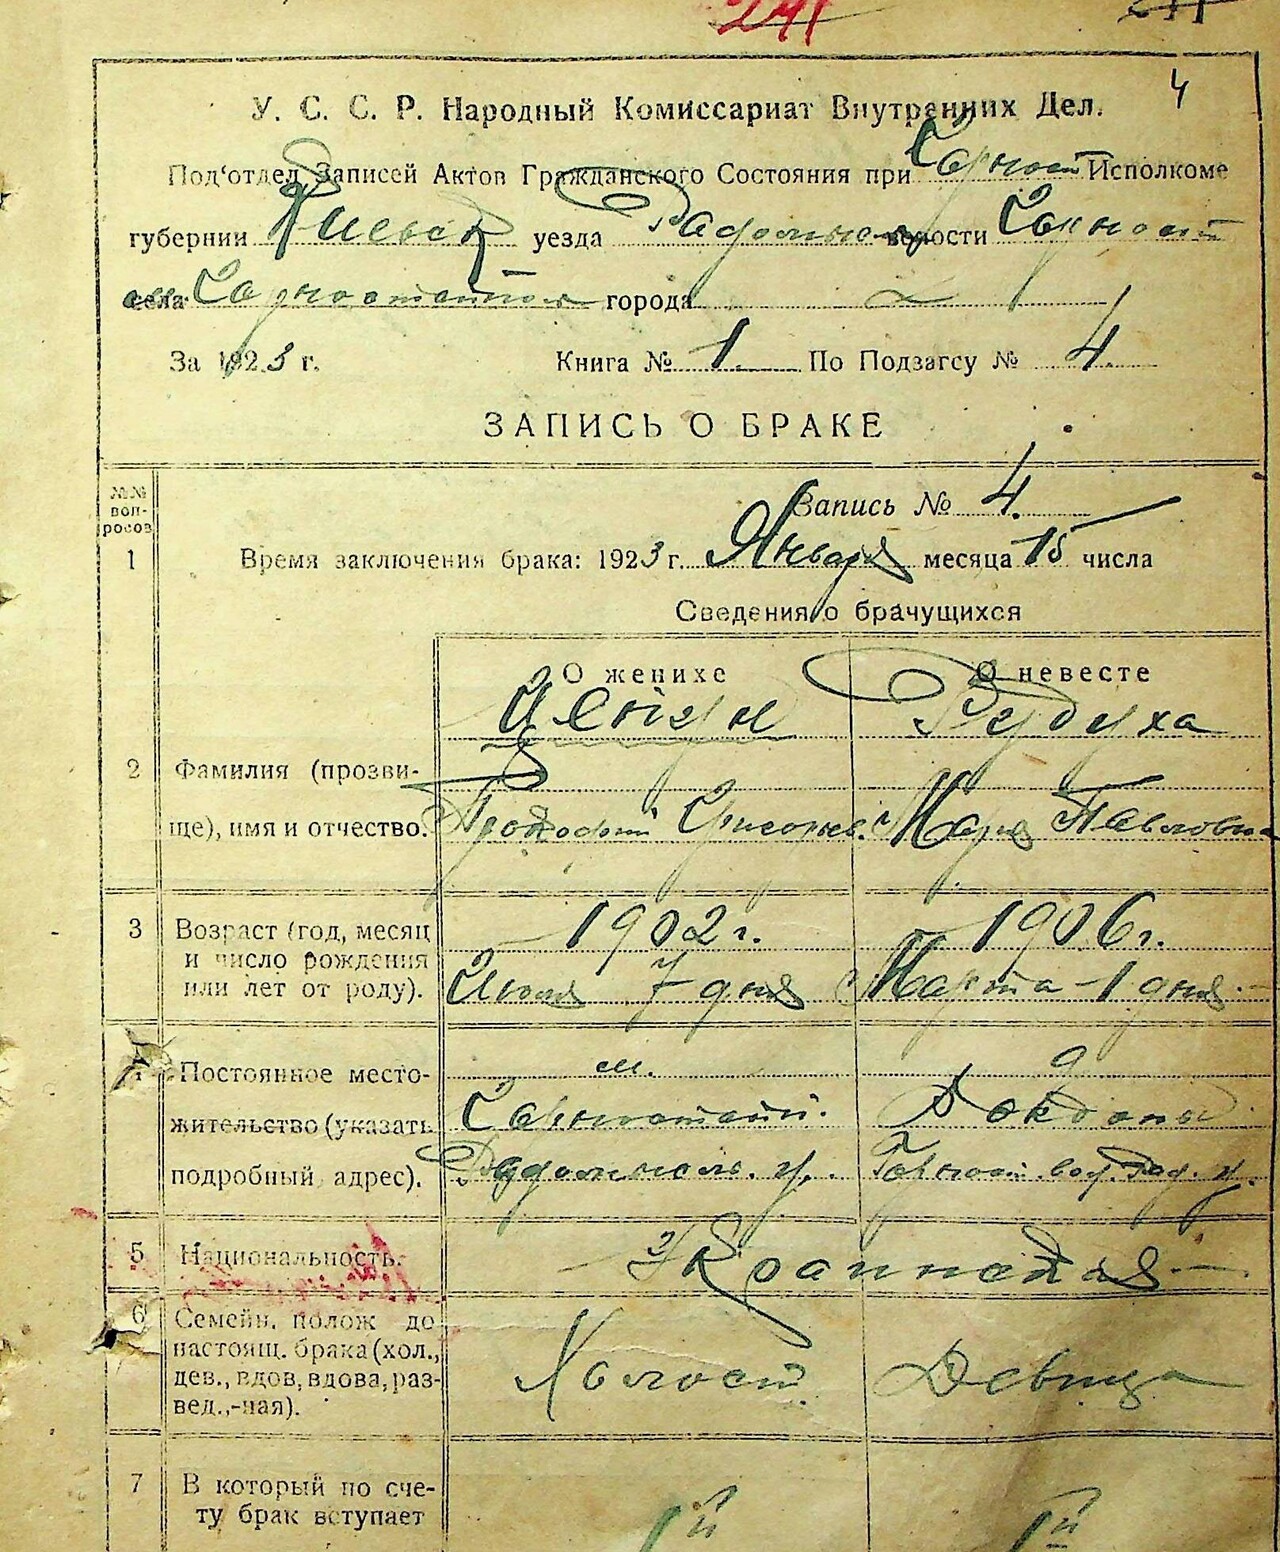 241
4
У. С. С. Р. Народный Комиссариат Внутренних Дел.
Под'отдел Записей Актов Гражданского Состояния при Горност Исполкоме
губернии Киевск уезда Радомысл волости Горност
села Горностайполя города
За 1923 г. Книга № 1 По Подзагсу № 4.
ЗАПИСЬ О БРАКЕ
№№ воп-
росов
Запись № 4.
1 Время заключения брака: 1923 г. Января месяца 15 числа
Сведения о брачущихся
О женихе О невесте
Рудуха
2 Фамилия (прозви-
ще), имя и отчество. Прокофий Григорьев. Мария Павловна
3 Возраст (год, месяц 1902 г. 1906 г.
и число рождения
или лет от роду). Июля 7 дня Марта 1 дня
4 Постоянное место- м. д
жительство (указать Горностайп.
подробный адрес). Радомысль. у. Горност. вол. Рад. у.
5 Национальность. Украинская
6 Семейн. полож до
настоящ. брака (хол., Холост Девица
дев., вдов, вдова, раз-
вед.,-ная).
7 В который по сче-
ту брак вступает 1й 1й